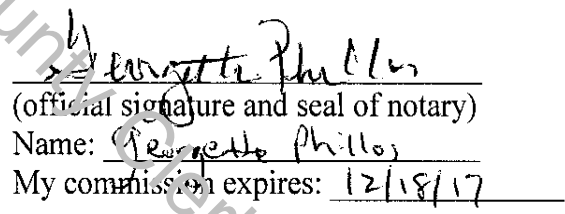 Georgette Phillos
(official signature and seal of notary)
Name: Georgette Phillos
My commission expires: 12/18/17